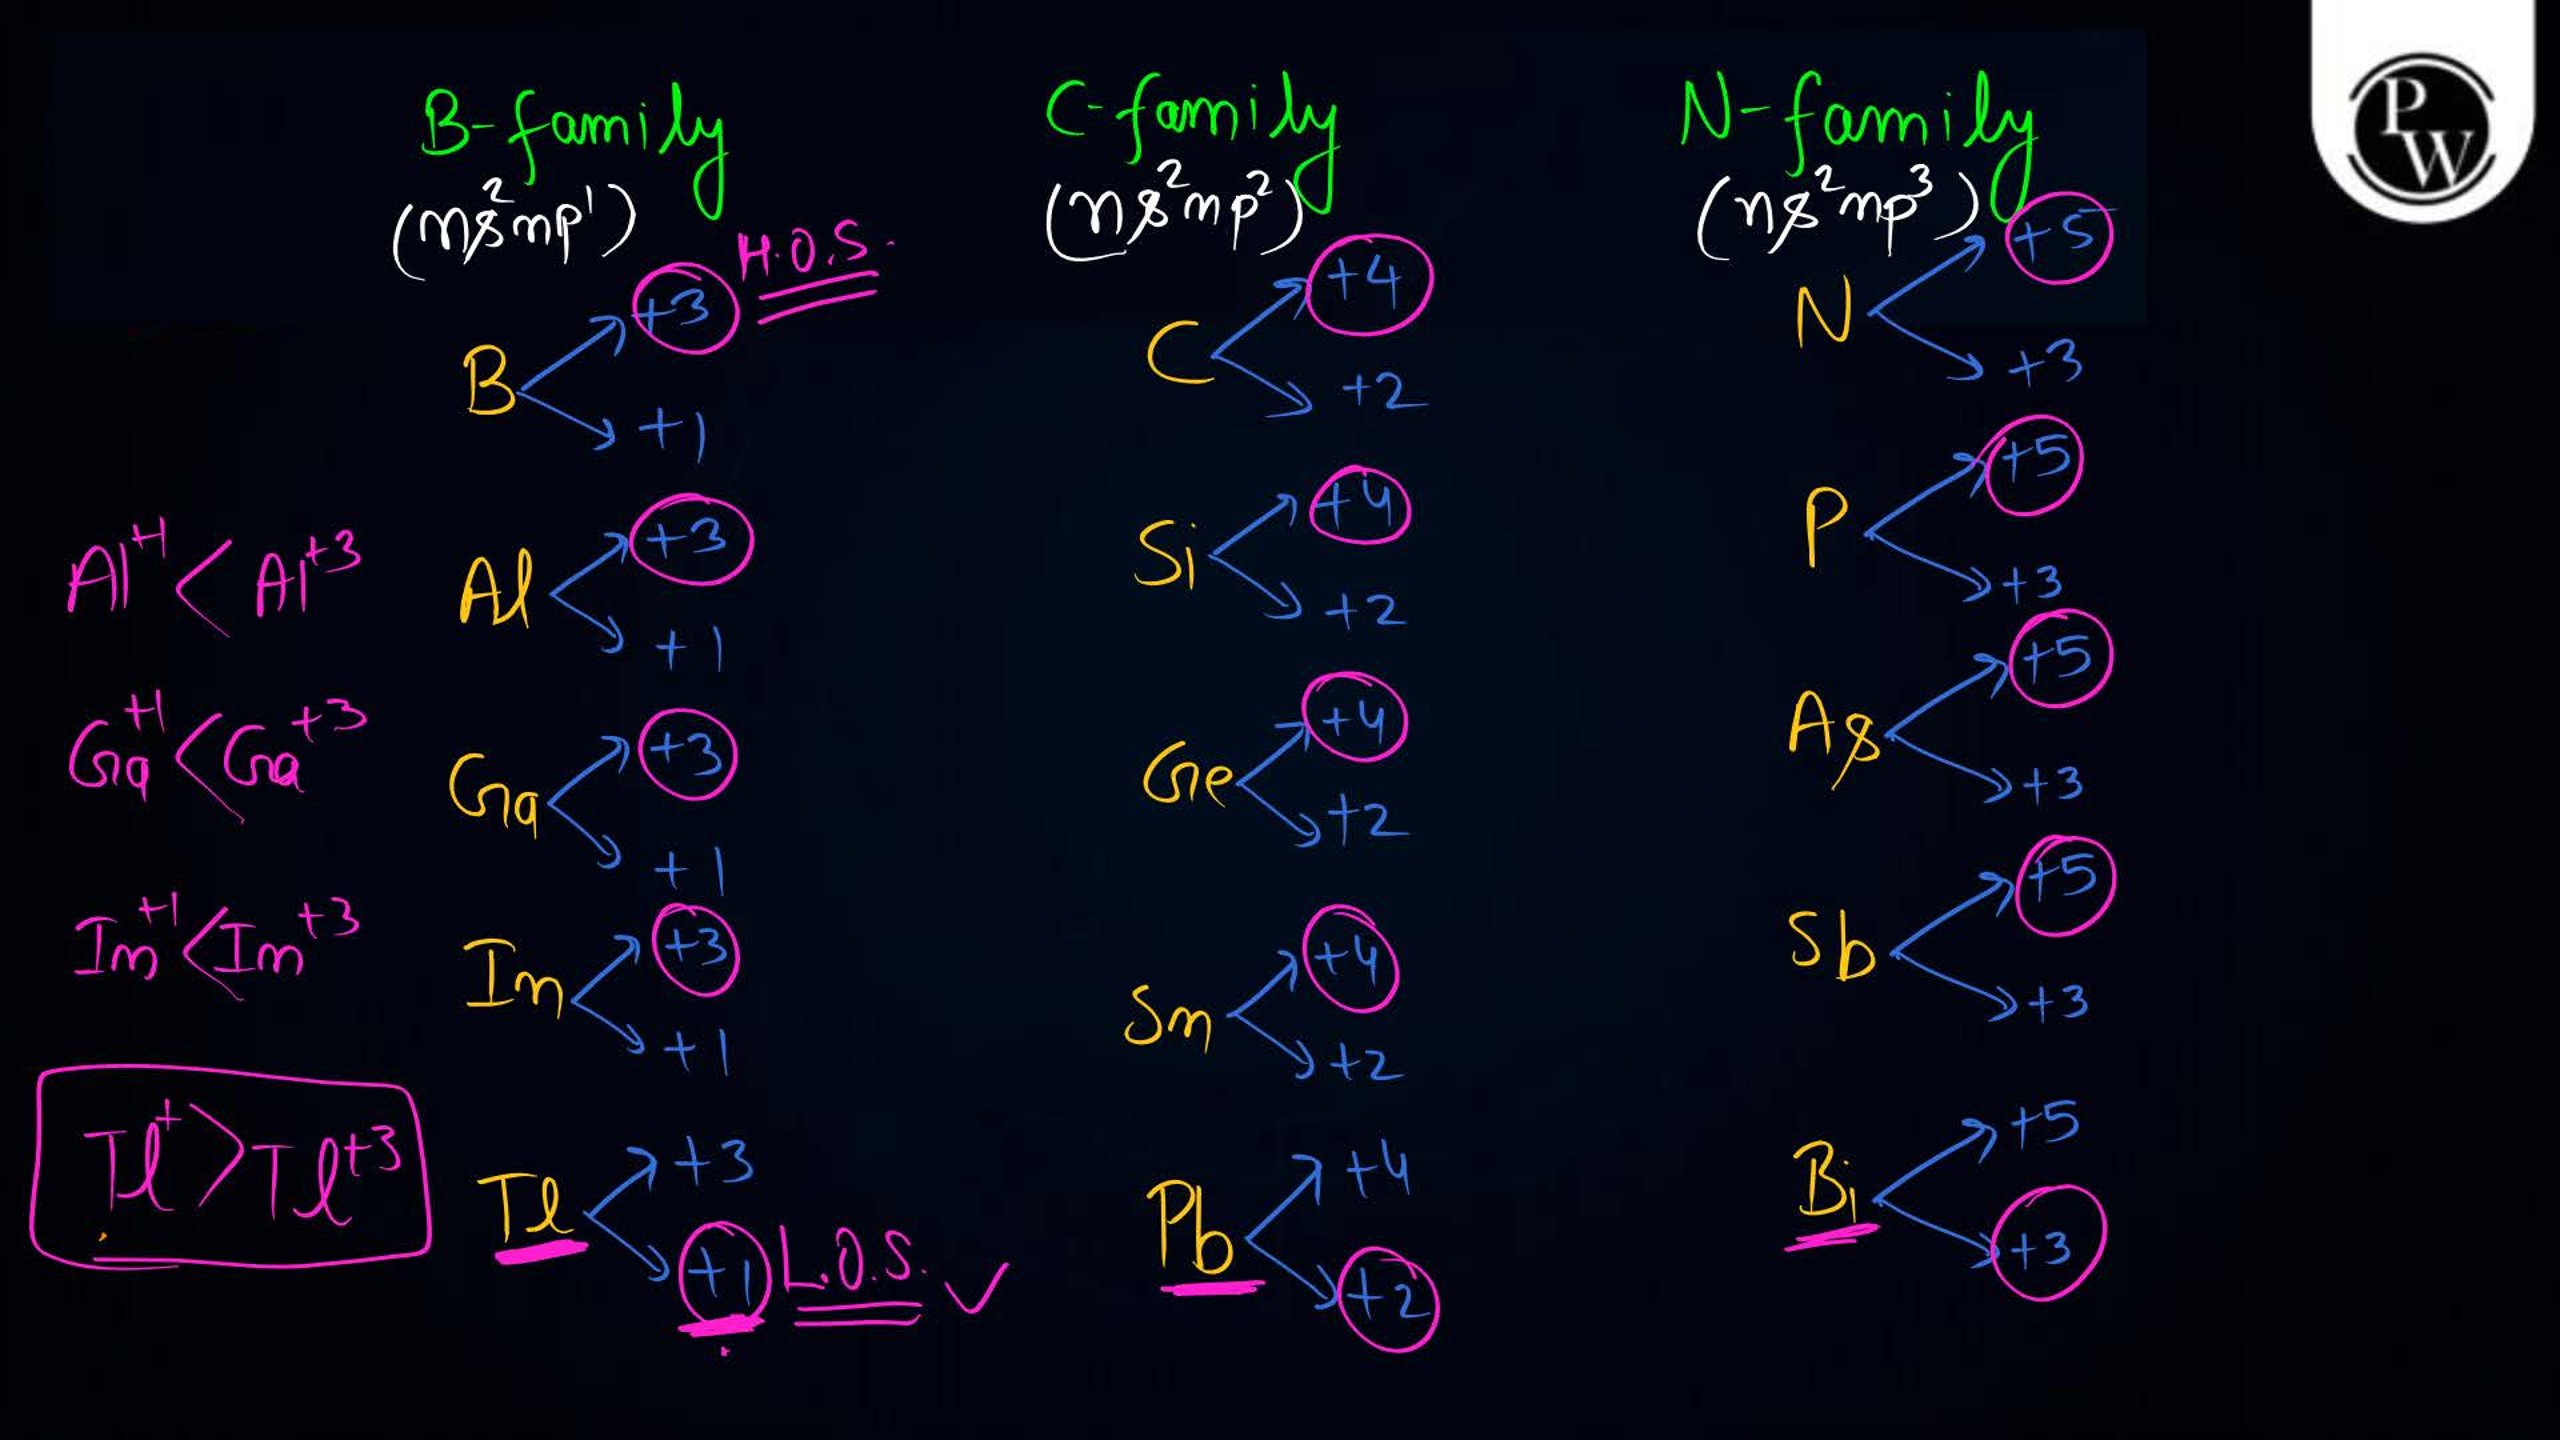 B-family
(ns²np¹)
B +3 H.O.S.
+1
Al⁺¹ < Al⁺³
Al +3
+1
Ga⁺¹ < Ga⁺³
Ga +3
+1
In⁺¹ < In⁺³
In +3
+1
Tl⁺ > Tl⁺³
Tl +3
+1 L.O.S. ✓
C-family
(ns²np²)
C +4
+2
Si +4
+2
Ge +4
+2
Sn +4
+2
Pb +4
+2
N-family
(ns²np³)
N +5
+3
P +5
+3
As +5
+3
Sb +5
+3
Bi +5
+3
PW